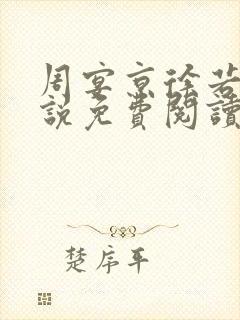 周宴京徐若
說免費閱讀
楚序平